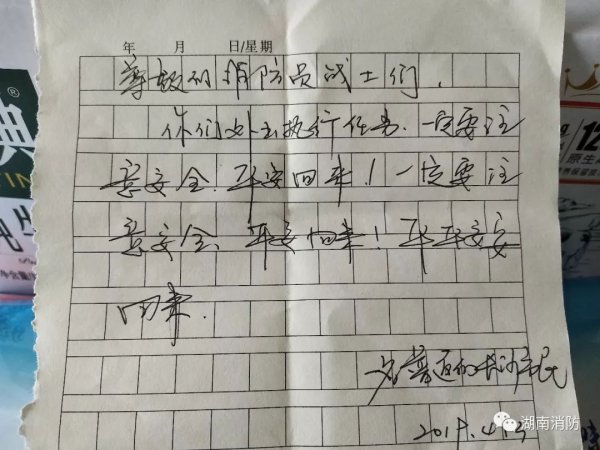 年 月 日/星期
尊敬的消防员战士们,
你们外出执行任务.一定要注
意安全.平安回来!一定要注
意安全.平安回来!平平安安
回来.
一名普通的长沙市民
2019.4.
典
®
12
湖南消防